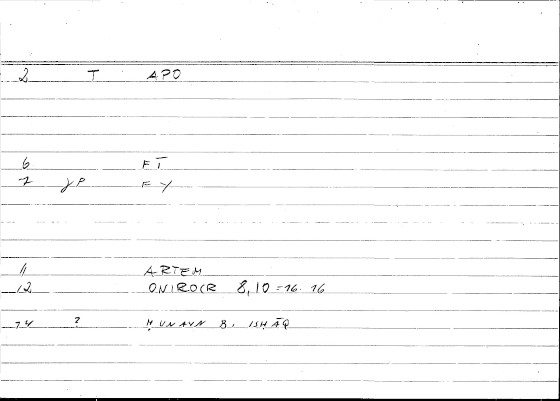 2 T APO
6 FT
7 γP FY
11 ARTEM
12 ONIROCR 8,10=16.16
14 ? ḤUNAYN B. ISḤĀQ